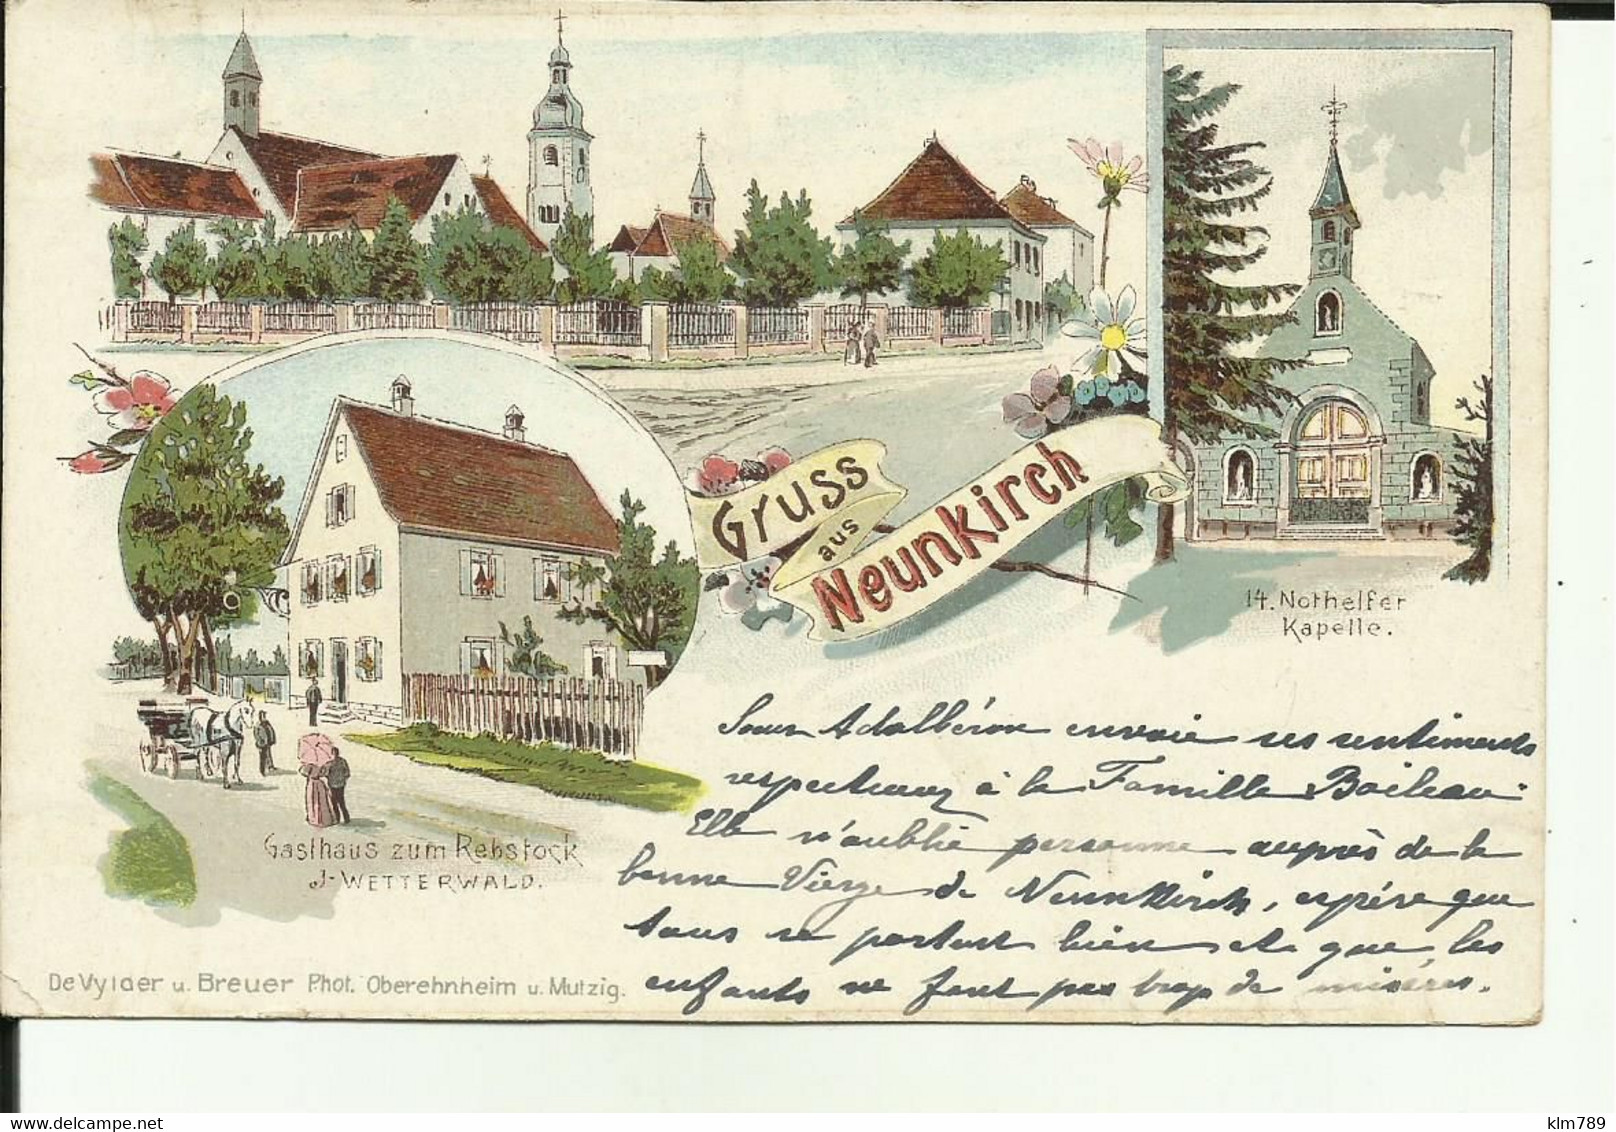 Gruss
aus
Neunkirch
14. Nothelfer
Kapelle.
Gasthaus zum Rebstock
J. WETTERWALD.
De Vylder u. Breuer Phot. Oberehnheim u. Mutzig.
Soeur Adalbéron envoie ses sentiments
respectueux à la Famille Boileau.
Elle n'oublie personne auprès de la
bonne Vierge de Neunkirch, espère que
tous se portent bien et que les
enfants ne font pas trop de misères.
klm789